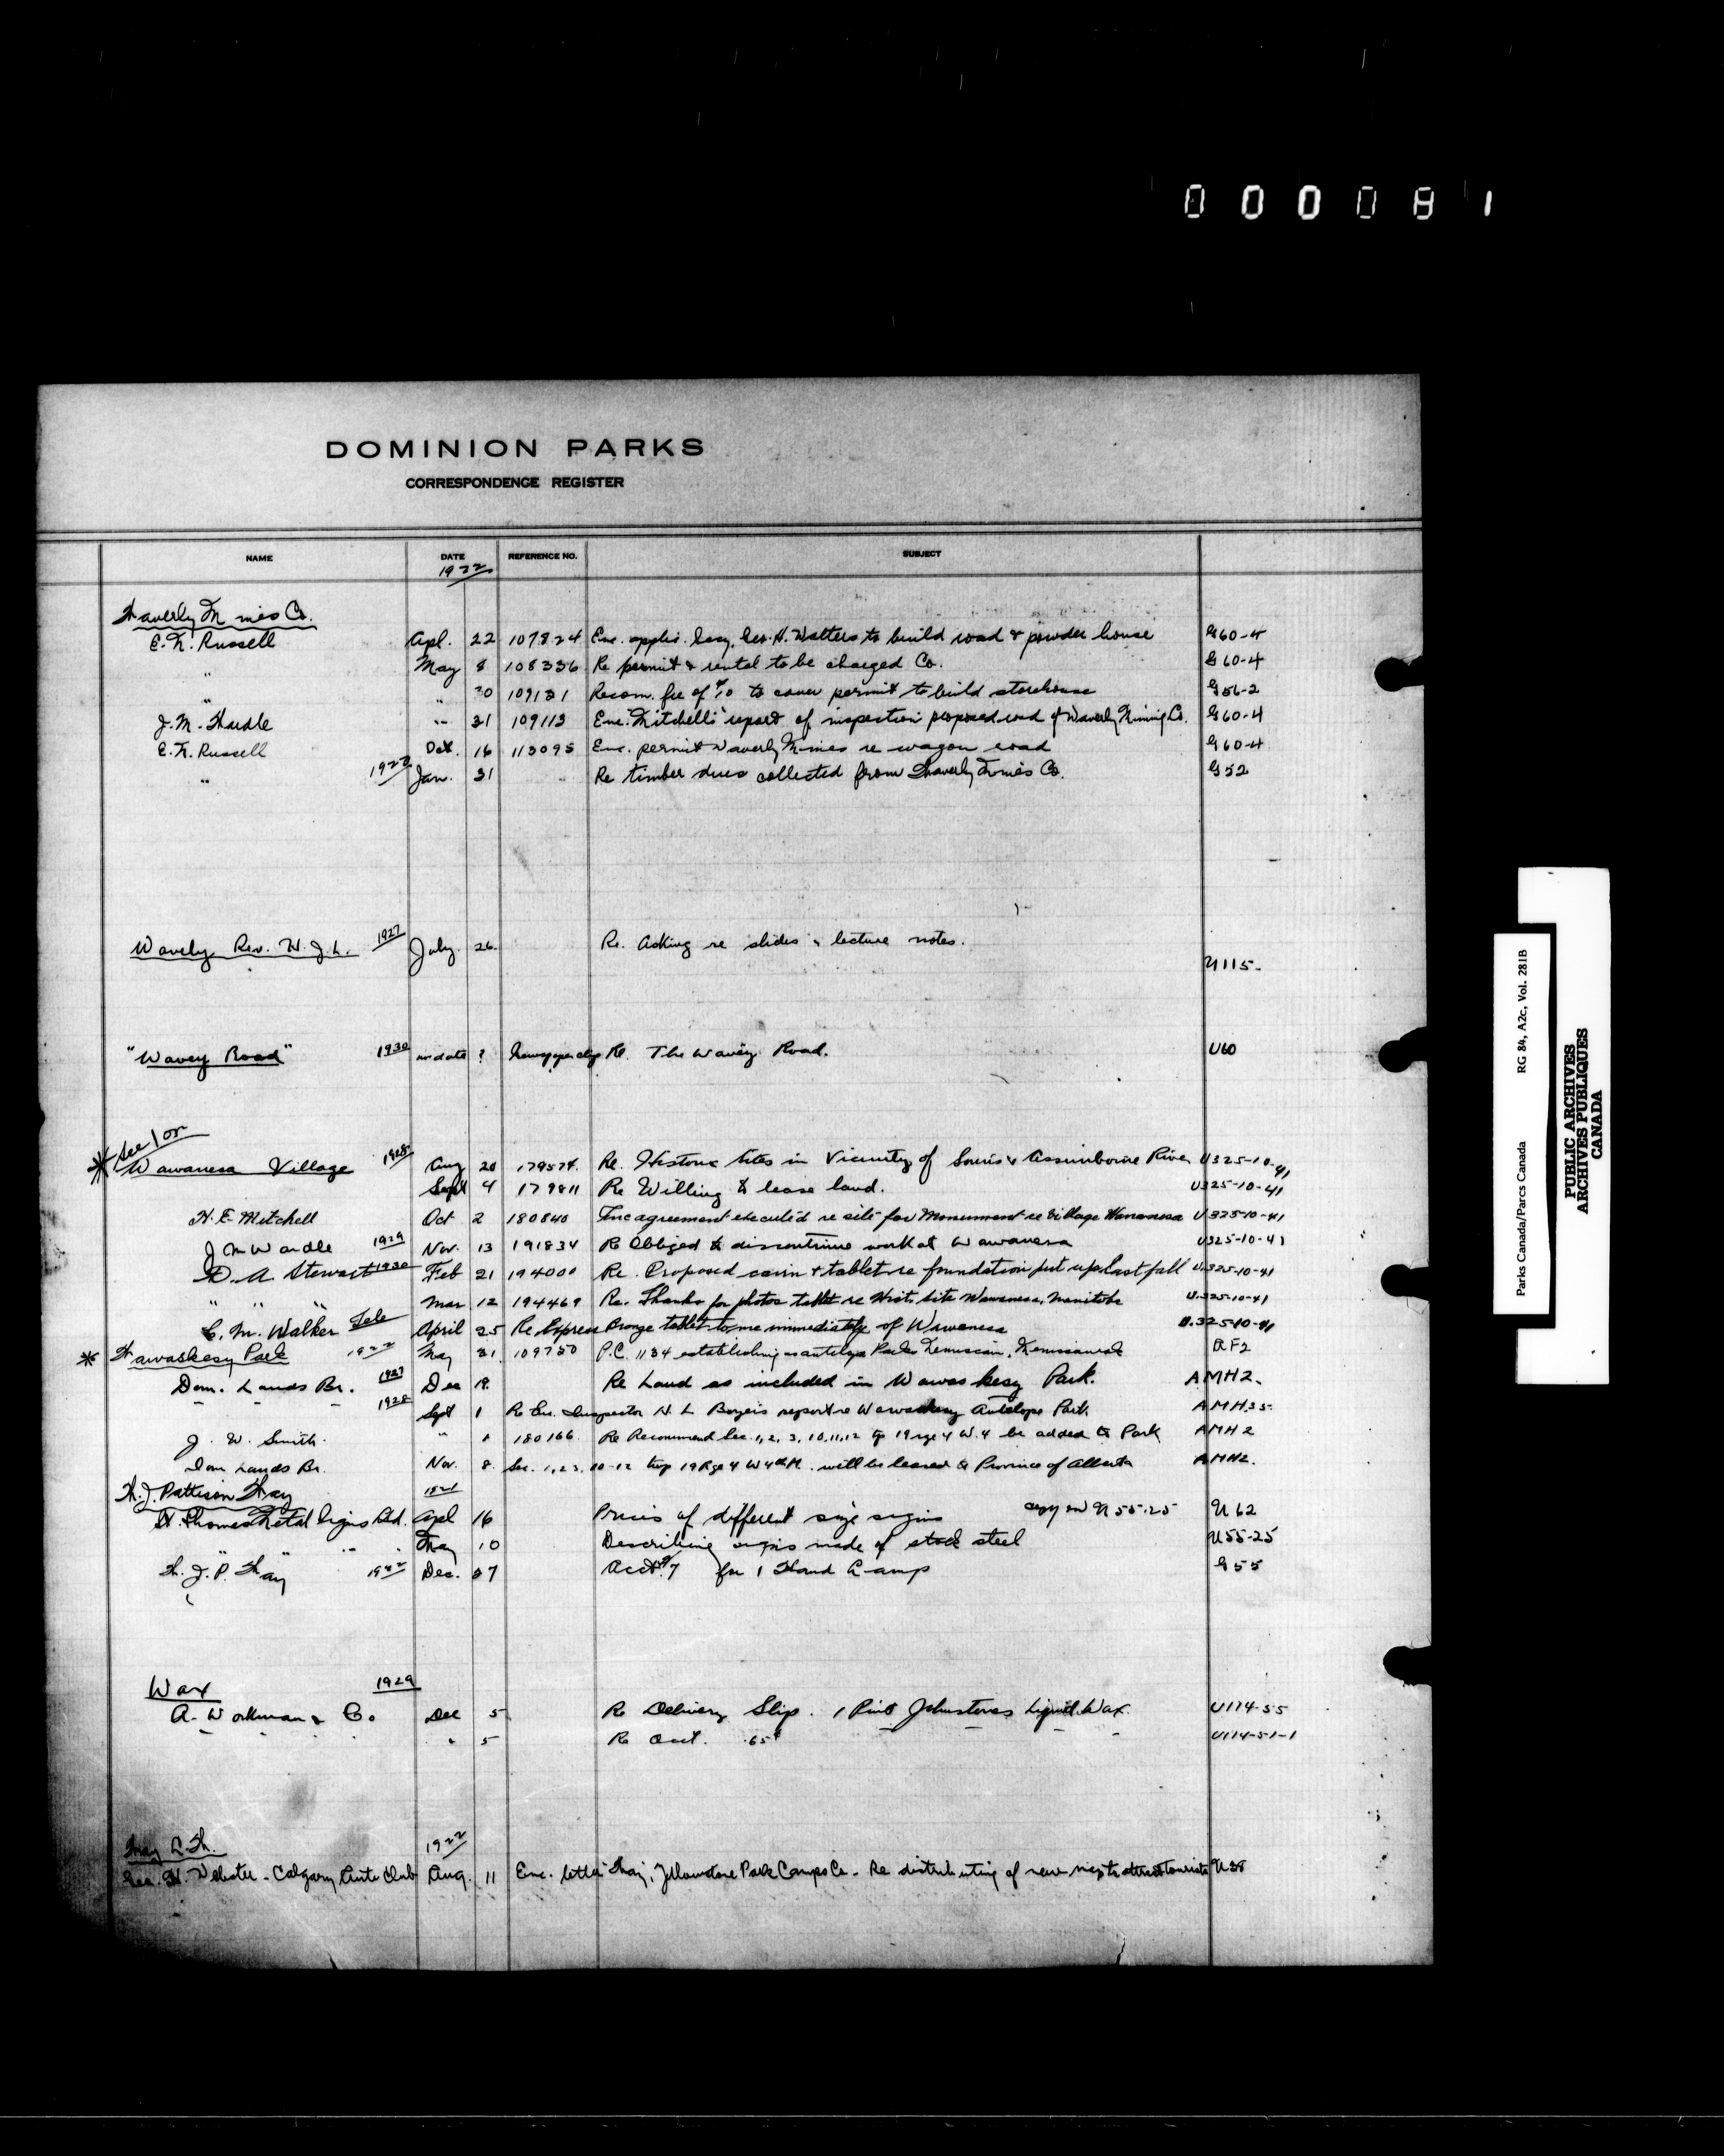 000081
DOMINION PARKS
CORRESPONDENCE REGISTER
NAME DATE REFERENCE NO. SUBJECT
1922
Waverly Mines Co.
E. N. Russell Apl. 22 107824 Enc. applic. Geo. H. Walters to build road & powder house G60-4
" May 8 108336 Re permit & rental to be charged Co. G60-4
" " 30 109131 Recom. fee of $10 to cover permit to build storehouse G56-2
J. M. Wardle " 31 109113 Enc. Mitchell's report of inspection proposed road of Waverly Mining Co. G60-4
E. N. Russell Oct. 16 113095 Enc. permit Waverly Mines re wagon road G60-4
" 1923 Jan. 31 Re timber dues collected from Waverly Mines Co. G52
Wavely Rev. H. J. L. 1927 July 26 Re. Asking re slides & lecture notes.
U115.
"Wavey Road" 1930 no date ? Newspaper clip Re. The Wavey Road. U60
See 1 or
* Wawanesa Village 1928 Aug 20 179574. Re. Historic Sites in Vicinity of Souris & Assiniboine River U325-10-41
Sept 4 179811 Re Willing to lease land. U325-10-41
H. E. Mitchell Oct 2 180840 Inc agreement executed re site for Monument re Village Wawanesa U325-10-41
J M Wardle 1929 Nov. 13 191834 Re Obliged to discontinue work at Wawanesa U325-10-41
D. A. Stewart 1930 Feb 21 194000 Re. Proposed cairn & tablet re foundation put up last fall U.325-10-41
" " " Mar 12 194469 Re. Thanks for photos tablet re Hist. Site Wawanesa, Manitoba U.325-10-41
C. M. Walker Tele April 25 Re Express Bronze tablet to me immediately of Wawanesa U.325-10-41
* Wawaskesy Park 1922 May 31 109750 P.C. 1134 establishing as antelope Parks Nemiscam, AF2
Dom. Lands Br. 1927 Dec 19. Re Land as included in Wawaskesy Park. AMH2.
" " " 1928 Sept 1 Re Enc. Inspector N. L. Boyers report re Wawaskesy Antelope Park AMH35
J. W. Smith. " 180166 Re Recommend Sec. 1, 2, 3, 10, 11, 12 tp 19 rge 4 W. 4 be added to Park AMH2
Dom Lands Br. Nov. 8. Sec. 1, 2, 3, 10-12 twp 19 Rge 4 W 4th M. will be leased to Province of Alberta AMH2.
W. J. Pattison Way 1921
St. Thomas Metal Signs Ltd. Apl 16 Prices of different size signs copy on U55-25 U62
" " " May 10 Describing signs made of stock steel U55-25
W. J. P. Way 1922 Dec. 27 Acct. $7 for 1 Hand Lamp G55
Wax 1929
A. Workman & Co. Dec 5 Re Delivery Slip. 1 Pint Johnstones Liquid Wax. U174-55
" 5 Re Acct. .65¢ U174-51-1
Way L. W. 1922
Geo. H. Webster - Calgary Auto Club Aug. 11 Enc. letter Way, Yellowstone Park Camps Co. - Re distributing of new maps to attract tourists U38
Parks Canada/Parcs Canada RG 84, A2c, Vol. 281B
PUBLIC ARCHIVES
ARCHIVES PUBLIQUES
CANADA